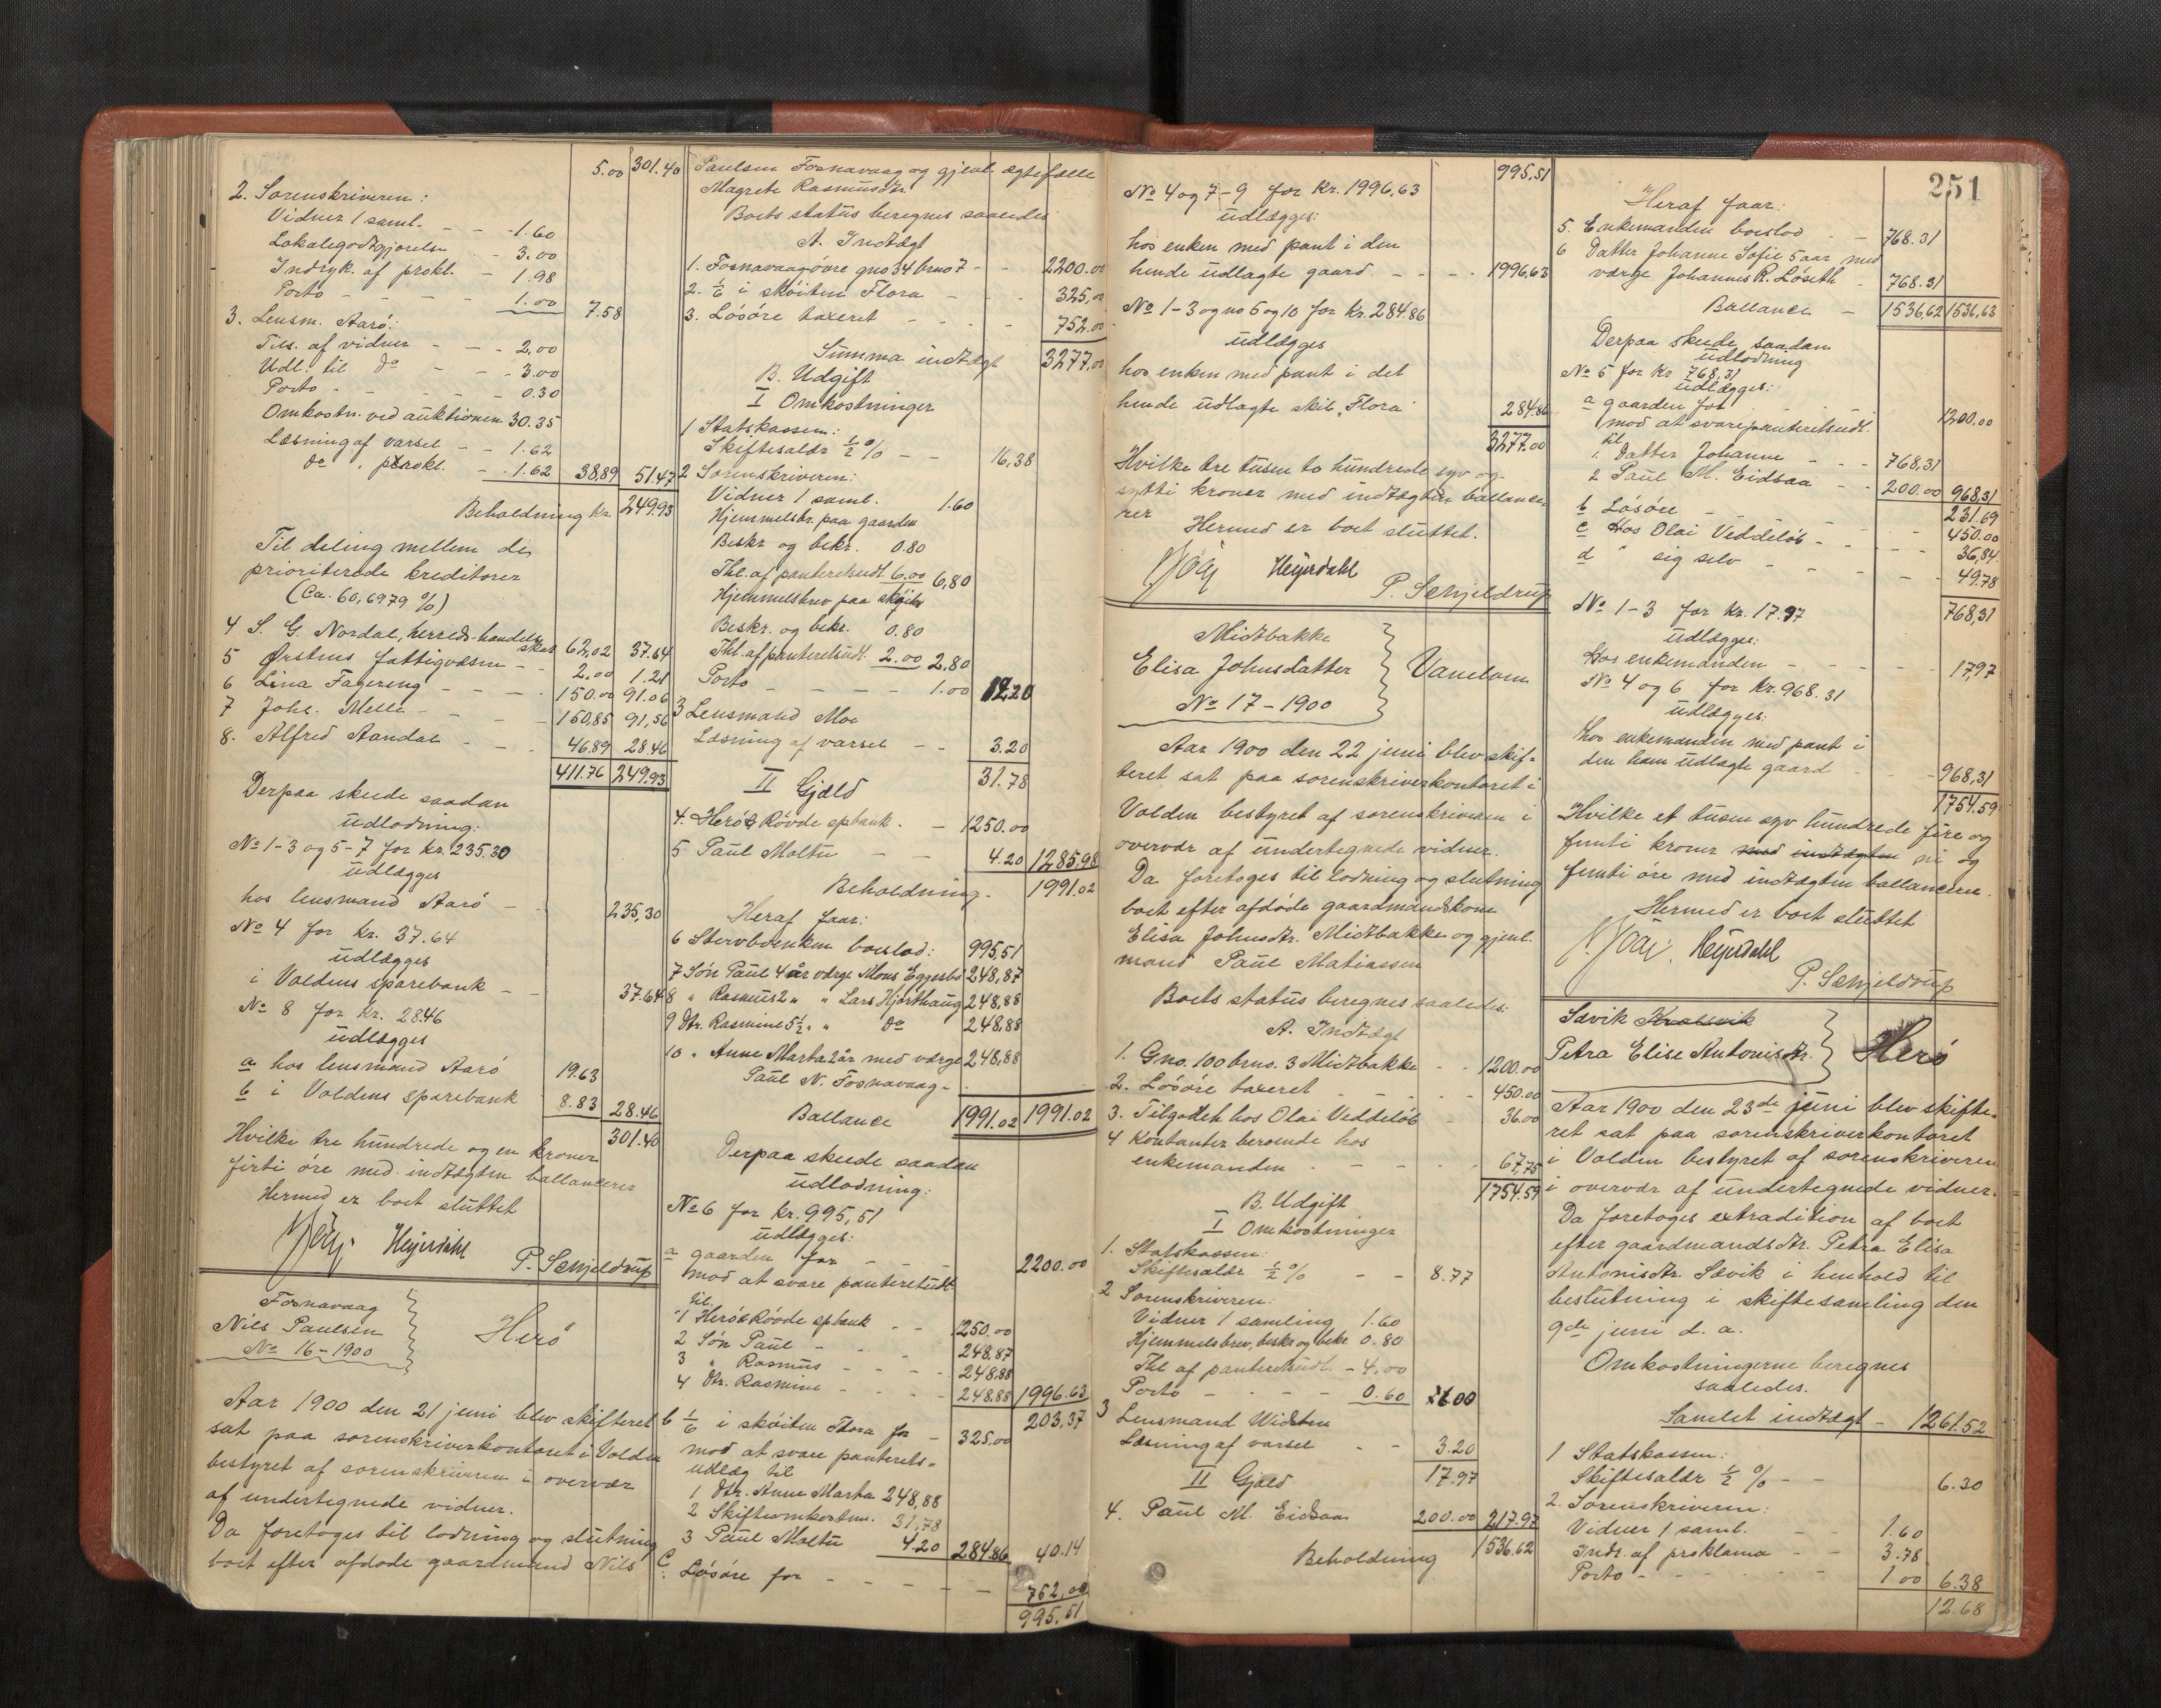 5.00 301.40
2. Sorenskriveren:
Vidner 1 saml. - - 1.60
Lokalegodtgjørelse - 3.00
Indryk. af prokl. - 1.98
Porto - - - - 1.00 7.58
3. Lensm. Aarö:
Tils. af vidner - - - 2.00
Udl. til do - - - 3.00
Porto - - - - 0.30
Omkostn. ved auktionen 30.35
Læsning af varsel - - 1.62
do " prokl. - - 1.62 38,89 51.47
Beholdning kr. 249.93
Til deling mellem de
prioriterede kreditorer
(Ca. 60,6979 %)
4 S. G. Nordal, herreds-handels
skat 62,02 37.64
5 Ørstens fattigvæsen - - 2.00 1.21
6 Lina Fagereng - - - 150.00 91.06
7 Johs. Melle - - - 150,85 91,56
8. Alfred Aandal - - - 46.89 28.46
411.76 249.93
Derpaa skeede saadan
udlodning:
No 1-3 og 5-7 for kr. 235.30
udlægges
hos lensmand Aarö - - 235,30
No 4 for kr. 37.64
udlægges
i Voldens sparebank - - 37.64
No 8 for kr. 28.46
udlægges
a hos lensmand Aarö 19.63
b i Voldens sparebank 8.83 28.46
301.40
Hvilke tre hundrede og en kroner
firti øre med indtægten ballancerer
Hermed er boet sluttet
Heyerdahl
P. Schjeldrup
Fosnavaag
Nils Paulsen
No 16-1900
Herö
Aar 1900 den 21 juni blev skifteret
sat paa sorenskriverkontoret i Volden
bestyret af sorenskriveren i overvær
af undertegnede vidner.
Da foretoges til lodning og slutning
boet efter afdøde gaardmand Nils
Paulsen Fosnavaag og gjenl. ægtefælle
Magrete Rasmusdtr.
Boets status beregnes saaledes
A. Indtægt
1. Fosnavaag øvre gno 34 brno 7 - - 2200.00
2. 1/6 i skøiten Flora - - 325,00
3. Løsøre taxeret - - - 752.00
Summa indtægt 3277,00
B. Udgift
I Omkostninger
1 Statskassen:
Skiftesalær 1/2 % - - 16,38
2 Sorenskriveren:
Vidner 1 saml. 1.60
Hjemmelsbr. paa gaarden
Beskr. og bekr. 0.80
Thl. af panteretsudl. 6.00 6,80
Hjemmelsbrev paa skøiten
Beskr. og bekr. 0.80
Thl. af panteretsudl. 2.00 2.80
Porto - - - - - 1.00 12.20
3 Lensmand Moe
Læsning af varsel - - 3.20
31.78
II Gjæld
4. Herö & Rövde spbank. - 1250.00
5 Paul Moltu - - 4.20 1285,98
Beholdning. 1991.02
Heraf faar:
6 Stervboenken boeslod: 995,51
7 Søn Paul 4 år værge Mons Eggesbö 248,87
8 " Rasmus 2 " " Lars Hjørthaug 248,88
9 Dtr. Rasmine 5 1/2 " " do 248.88
10 " Anne Marta 2 år med værge 248,88
Paul N. Fosnavaag -
Ballance 1991.02 1991.02
Derpaa skeede saadan
udlodning:
No 6 for kr. 995,51
udlægges:
a gaarden for - - - 2200.00
mod at svare panteretsudl.
til
1 Herö & Rövde spbank - - 1250.00
2 Søn Paul - - - 248.87
3 " Rasmus - - - 248.88
4 Dtr. Rasmine - - - 248.88 1996.63
203,37
b 1/6 i skøiten Flora for - 325,00
mod at svare panterets-
udlæg til
1 Dtr. Anne Marta 248,88
2 Skifteomkostn. 31,78
3 Paul Moltu 4.20 284.86 40.14
C. Løsøre for - - - - - 752,00
995.51
995,51
No 4 og 7-9 for kr. 1996,63
udlægges:
hos enken med pant i den
hende udlagte gaard - - - 1996,63
No 1-3 og no 5 og 10 for kr. 284.86
udlægges
hos enken med pant i det
hende udlagte skib "Flora" 284.86
3277.00
Hvilke tre tusen to hundrede syv og
sytti kroner med indtægten ballance-
rer
Hermed er boet sluttet.
Heyerdahl
P. Schjeldrup
Midtbakke
Elisa Johnsdatter
No 17-1900
Vanelven
Aar 1900 den 22 juni blev skif-
teret sat paa sorenskriverkontoret i
Volden bestyret af sorenskriveren i
overvær af undertegnede vidner.
Da foretoges til lodning og slutning
boet efter afdøde gaardmandskone
Elisa Johnsdtr. Midtbakke og gjenl.
mand Paul Matiassen
Boets status beregnes saaledes:
A. Indtægt
1. Gno. 100 brno. 3 Midtbakke - - 1200.00
2. Løsøre taxeret - - - - 450.00
3. Tilgodeh. hos Olai Veddeløb - 36.00
4 Kontanter beroende hos
enkemanden - - - - - 67,75
1754.59
B. Udgift
I Omkostninger
1. Statskassen:
Skiftesalær 1/2 % - - 8.77
2 Sorenskriveren:
Vidner 1 samling 1.60
Hjemmelsbrev, beskr og bekr 0.80
Thl. af panteretsudl. - 4.00
Porto - - - - 0.60 6.00
3 Lensmand Widsten
Læsning af varsel - - 3.20
17.97
II Gjæld
4. Paul M. Eidsaa 200.00 217.97
Beholdning 1536.62
251
Heraf faar:
5. Enkemanden boeslod - - 768.31
6 Datter Johanne Sofie 5 aar med
værge Johannes R. Løseth - 768.31
Ballance - 1536,62 1536,62
Derpaa skeede saadan
udlodning
No 5 for kr 768,31
udlægges:
a gaarden for - - - 1200.00
mod at svare panteretsudl.
til
1. Datter Johanne - - - 768,31
2 Paul M. Eidsaa - - 200.00 968,31
231.69
b Løsøre - - - - 450.00
c Hos Olai Veddeløb - - - 36,84
d " sig selv - - - - 49.78
768,31
No 1-3 for kr. 17.97
udlægges:
Hos enkemanden - - - - 17,97
No 4 og 6 for kr. 968.31
udlægges:
hos enkemanden med pant i
den ham udlagte gaard - - 968,31
1754.59
Hvilke et tusen syv hundrede fire og
femti kroner med indtægten ni og
femti øre med indtægten ballancerer.
Hermed er boet sluttet
Heyerdahl
P. Schjeldrup
Sævik
Petra Elise Antonisdtr.
Herö
Aar 1900 den 23de juni blev skifte-
ret sat paa sorenskriverkontoret
i Volden bestyret af sorenskriveren
i overvær af undertegnede vidner.
Da foretoges extradition af boet
efter gaardmandsdtr. Petra Elisa
Antonisdtr. Sævik i henhold til
beslutning i skiftesamling den
9de juni d. a.
Omkostningerne beregnes
saaledes.
Samlet indtægt - 1261.52
1 Statskassen:
Skiftesalær 1/2 % - - 6.30
2. Sorenskriveren:
Vidner 1 saml. - - 1.60
Indr. af proklama - - 3.78
Porto - - - - - 1.00 6.38
12.68